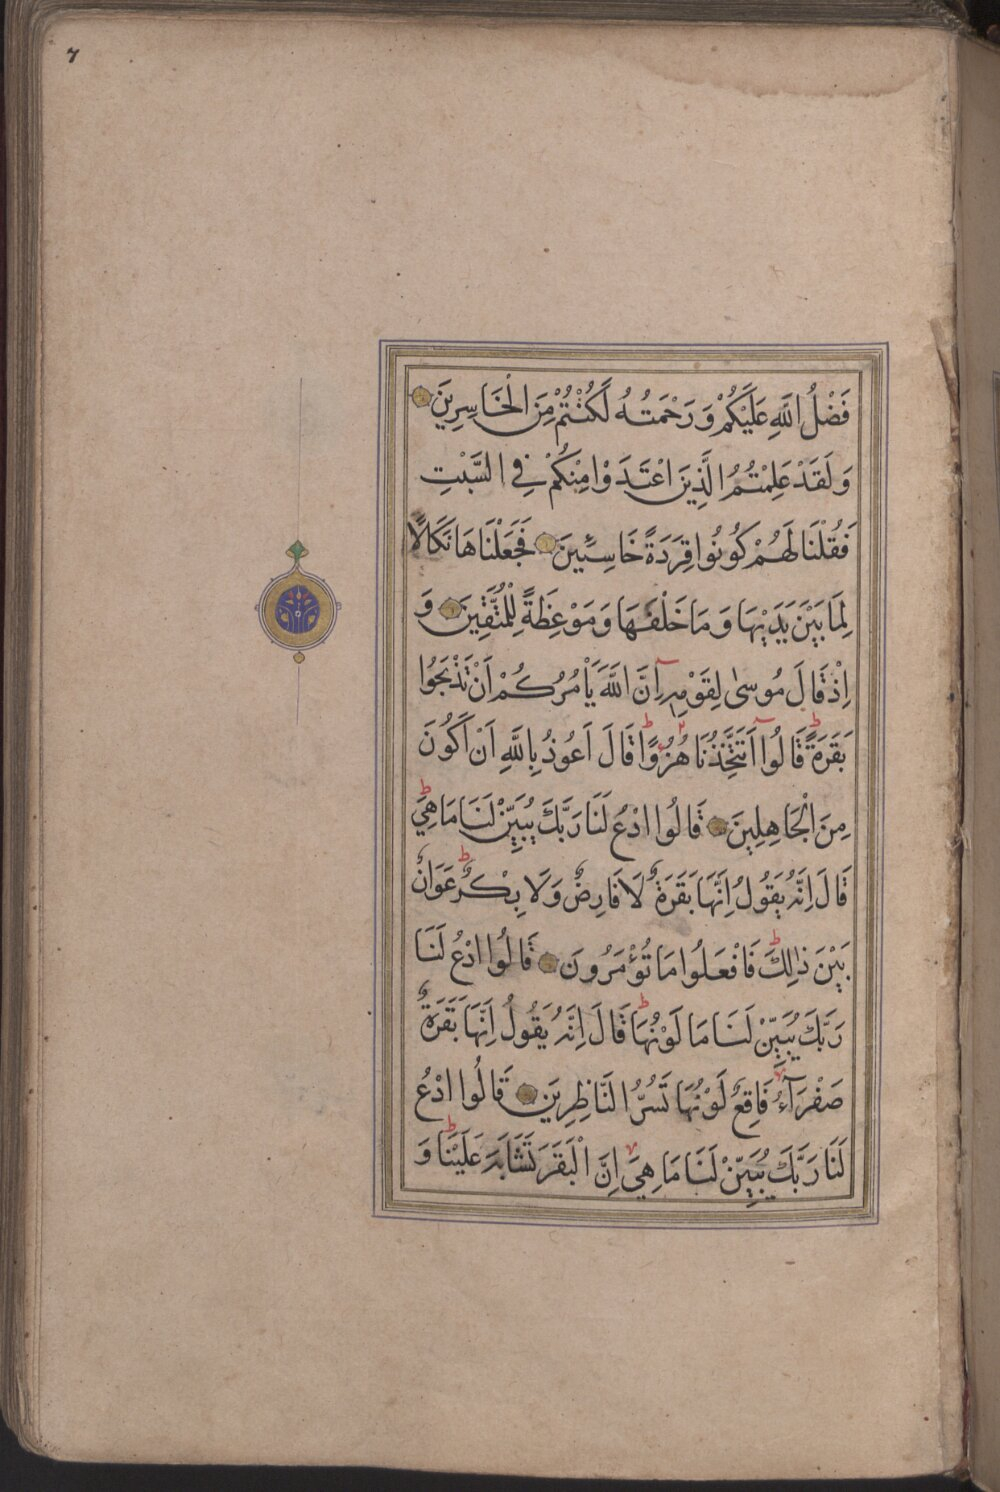 7
فَضْلُ اللَّهِ عَلَيْكُمْ وَرَحْمَتُهُ لَكُنْتُمْ مِنَ الْخَاسِرِينَ
وَلَقَدْ عَلِمْتُمُ الَّذِينَ اعْتَدَوْا مِنْكُمْ فِي السَّبْتِ
فَقُلْنَا لَهُمْ كُونُوا قِرَدَةً خَاسِئِينَ فَجَعَلْنَاهَا نَكَالًا
لِمَا بَيْنَ يَدَيْهَا وَمَا خَلْفَهَا وَمَوْعِظَةً لِلْمُتَّقِينَ وَ
اِذْ قَالَ مُوسٰى لِقَوْمِهِ اِنَّ اللَّهَ يَأْمُرُكُمْ اَنْ تَذْبَحُوا
بَقَرَةً ط قَالُوا اَتَتَّخِذُنَا هُزُوًا ط قَالَ اَعُوذُ بِاللَّهِ اَنْ اَكُونَ
مِنَ الْجَاهِلِينَ قَالُوا ادْعُ لَنَا رَبَّكَ يُبَيِّنْ لَنَا مَا هِيَ ط
قَالَ اِنَّهُ يَقُولُ اِنَّهَا بَقَرَةٌ لَا فَارِضٌ وَلَا بِكْرٌ ط عَوَانٌ
بَيْنَ ذٰلِكَ ط فَافْعَلُوا مَا تُؤْمَرُونَ قَالُوا ادْعُ لَنَا
رَبَّكَ يُبَيِّنْ لَنَا مَا لَوْنُهَا ط قَالَ اِنَّهُ يَقُولُ اِنَّهَا بَقَرَةٌ
صَفْرَآءُ فَاقِعٌ لَوْنُهَا تَسُرُّ النَّاظِرِينَ قَالُوا ادْعُ
لَنَا رَبَّكَ يُبَيِّنْ لَنَا مَا هِيَ اِنَّ الْبَقَرَ تَشَابَهَ عَلَيْنَا ط وَ